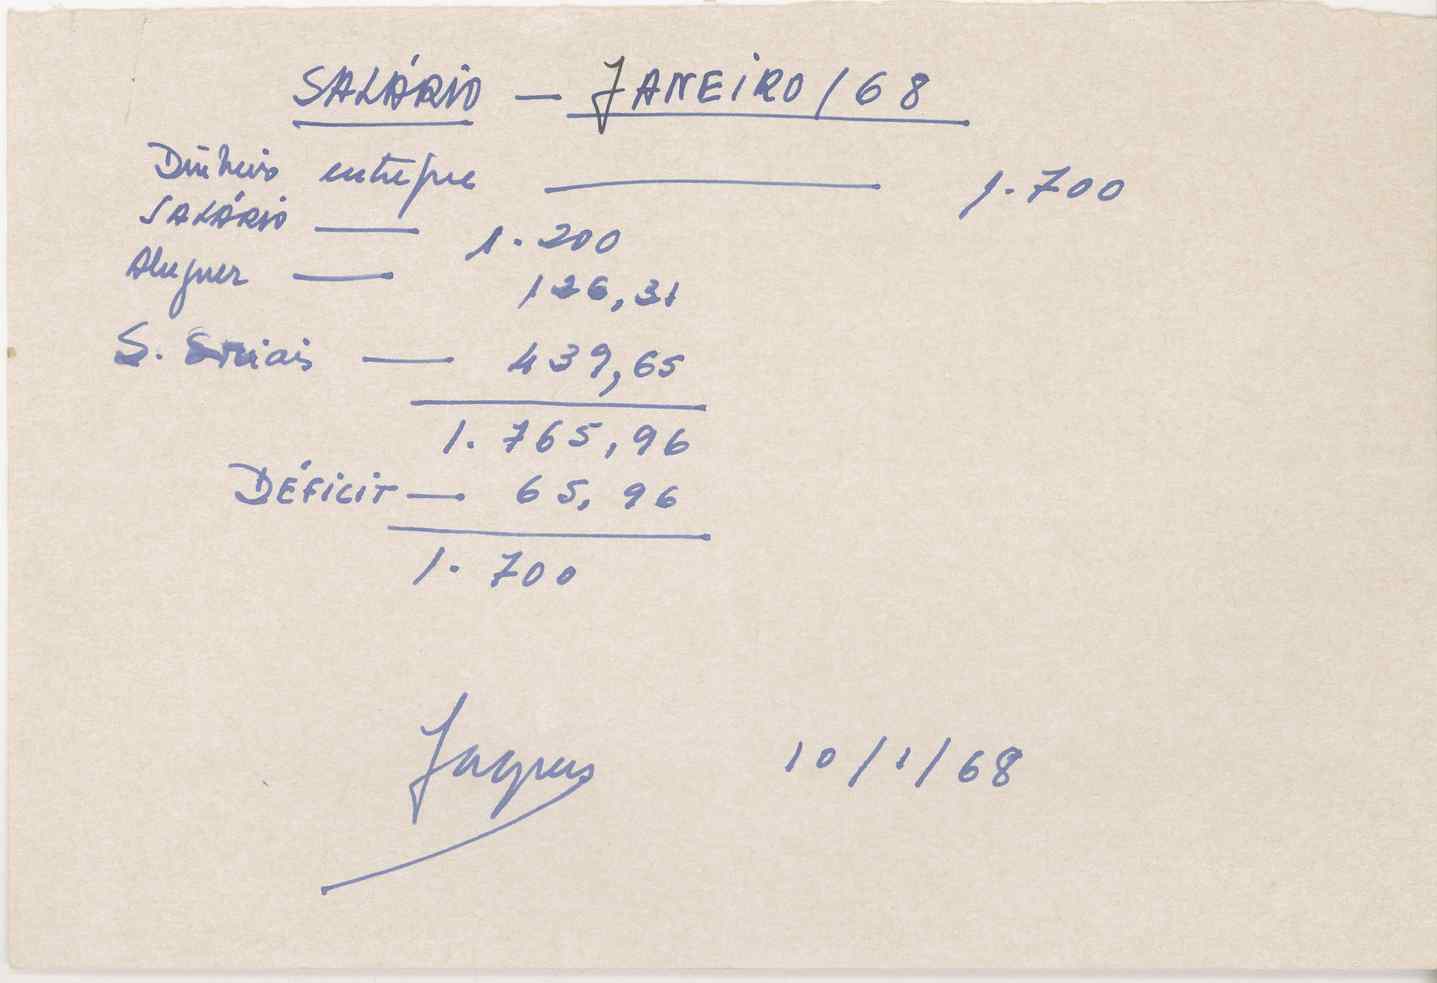 SALÁRIO — JANEIRO/68
Dinheiro entregue — 1.700
SALÁRIO — 1.200
Aluguer — 126,31
S. Sociais — 439,65
1.765,96
DÉFICIT — 65,96
1.700
Jaques 10/1/68